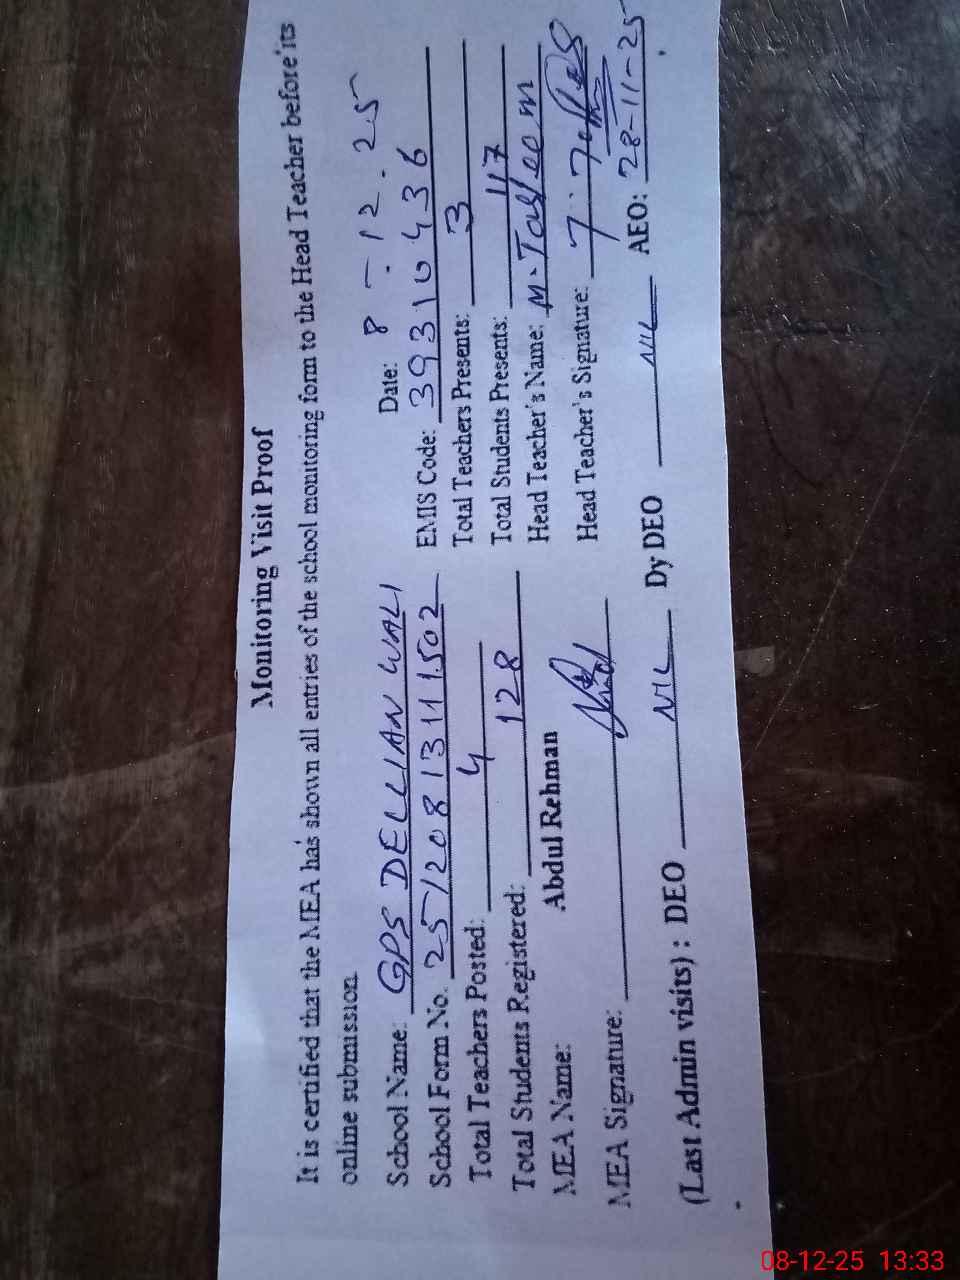 Monitoring Visit Proof
It is certified that the MEA has shown all entries of the school monitoring form to the Head Teacher before its
online submission
Date: 8-12.25
School Name: GPS DELLIAN WALI EMIS Code: 39310436
School Form No. 25120813111502 Total Teachers Presents: 3
Total Teachers Posted: 4 Total Students Presents: 117
Total Students Registered: 128 Head Teacher's Name: M-Tasleem
MEA Name: Abdul Rehman Head Teacher's Signature:
MEA Signature:
(Last Admin visits) : DEO NIL Dy DEO NIL AEO: 28-11-25
08-12-25 13:33